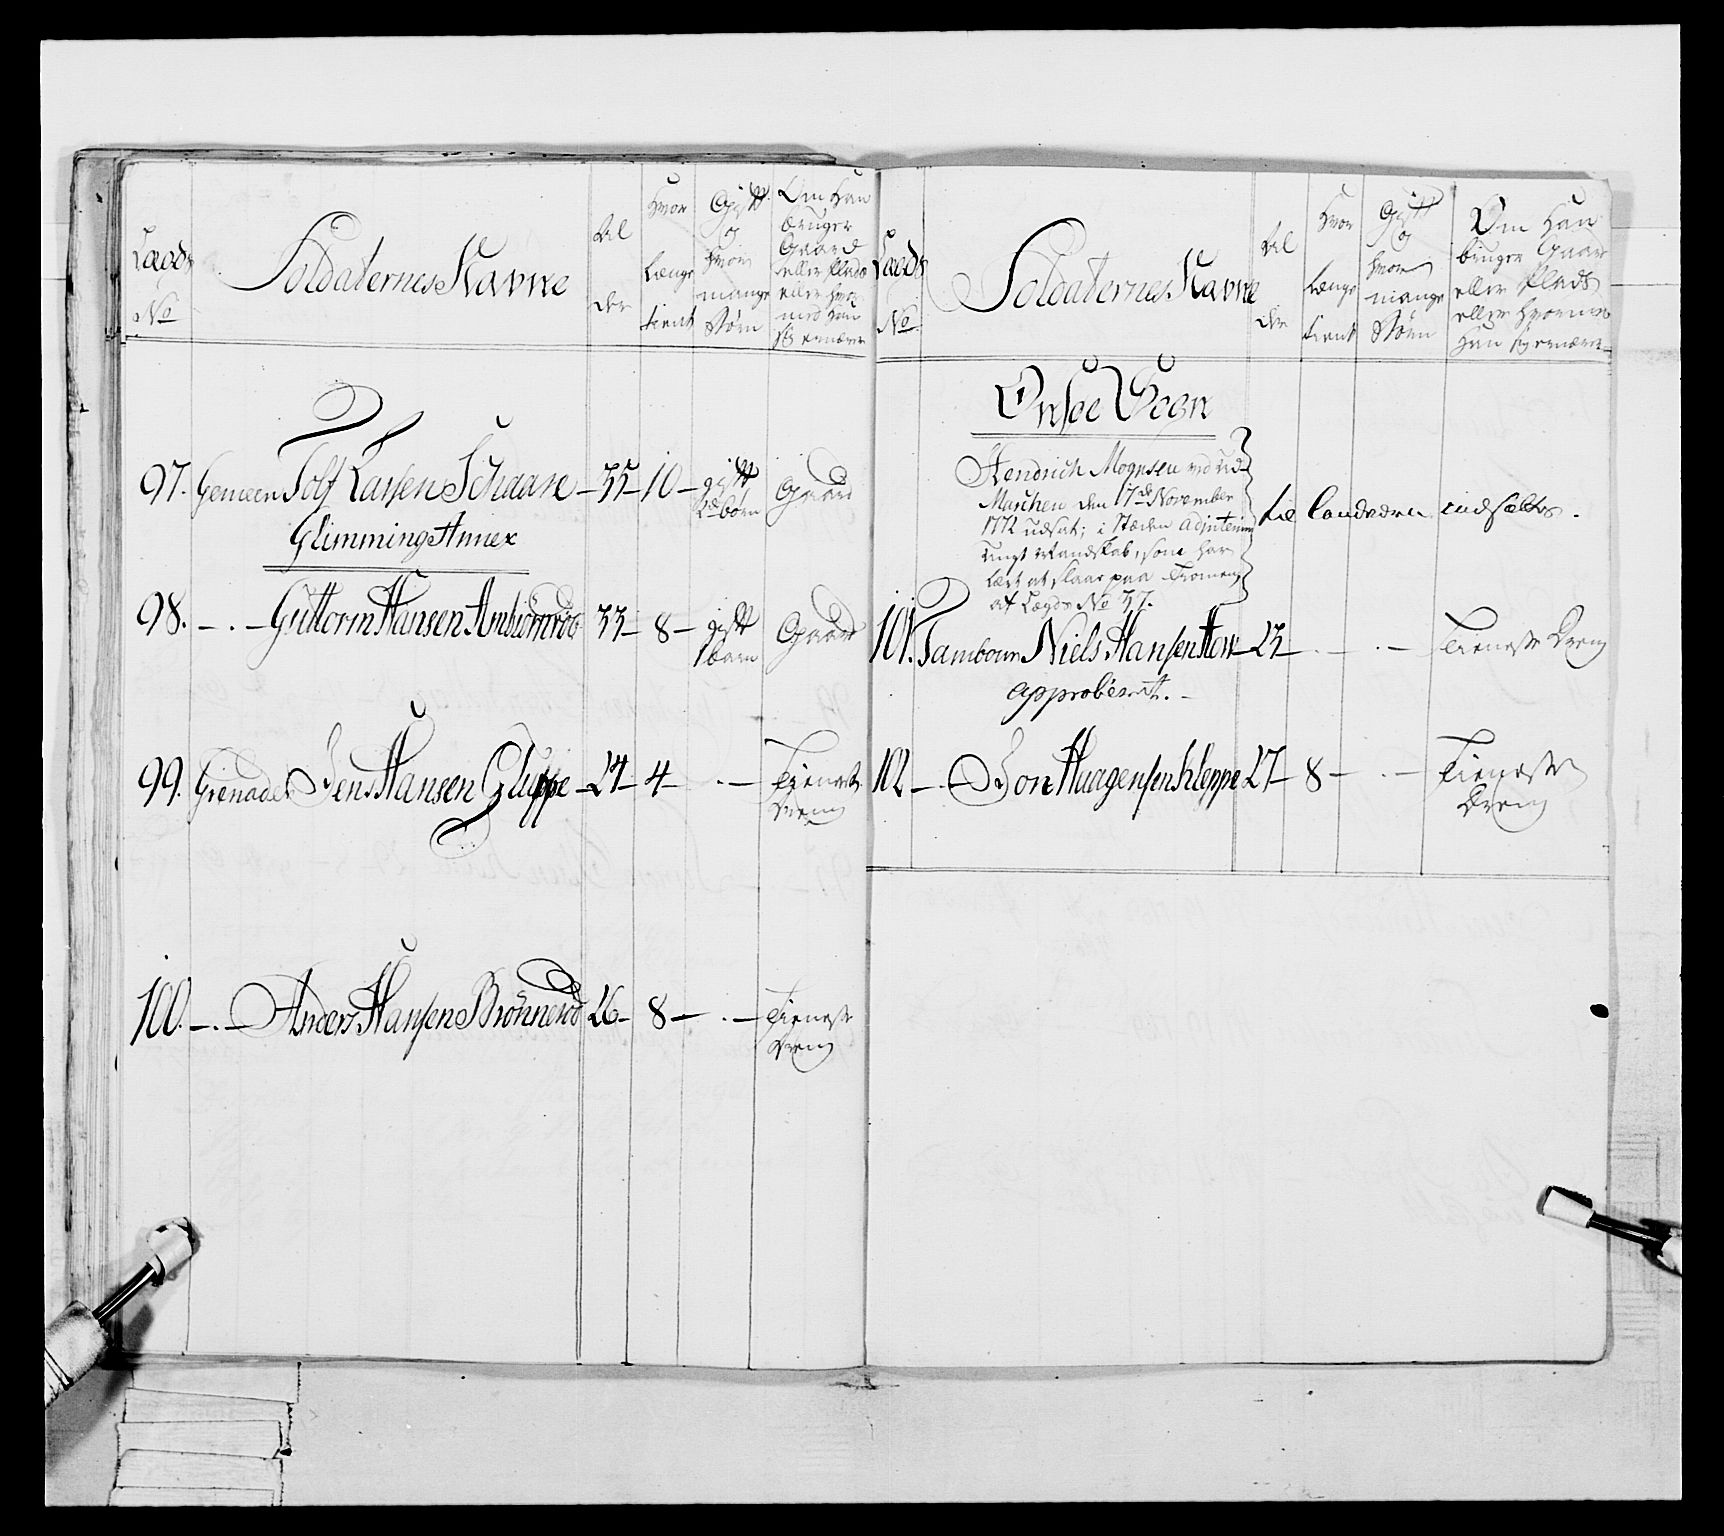 Lægds
No
Soldaternes Navne
Al
der
Hvor
længe
tient
Gift
og
hvor
mange
Børn
Om Han
bruger
Gaard
eller Plads
eller hvor
med Han
sig ernærer
97. Gemeen Tolf Larsen Schaare – 35 – 10 – gift Gaard
2de børn
Glimming Annex
98. – . – Guttorm Hansen Ambiörnröd 33 – 8 – gift Gaard
1 barn
99. Grenadeer Jens Hansen Gluppe – 24 – 4 – . – Tieneste
Dreng
100. – . – Anders Hansen Brönneröd 26 – 8 – . – Tieneste
Dreng
Lægds
No
Soldaternes Navne
Al
der
Hvor
længe
tient
Gift
og
hvor
mange
Börn
Om Han
bruger Gaar
eller Plads
eller hvormed
Han sig ernærer
Onsöe Sogn
Hendrich Mognsen ved ud-
Marchen den 17de November
1772 udsat; i Stæden adjnterim
ungt Mandskab, som har
lært at slaae paa Tromen,
af Lægds No 37.
til Landværn indsættes.
101. Tambour Niels Hansen Höw – 23 – . – . – Tieneste Dreng
approberet. –
102 – Jon Haagensen Kleppe 27 – 8 – . – Tieneste
Dreng